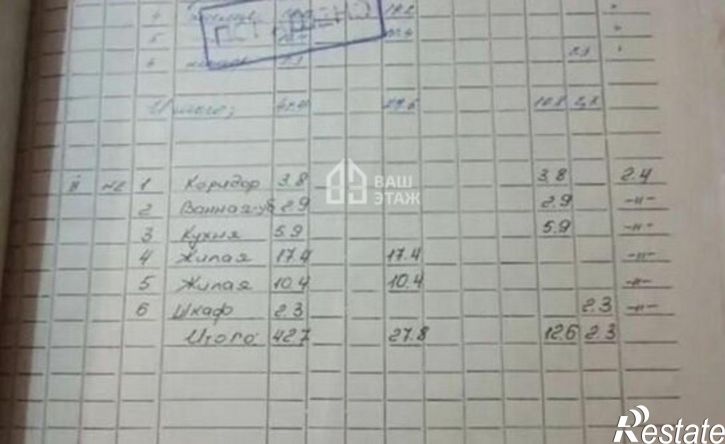 4
5
6 2,1
Итого; 10.8 2,1
ВАШ
ЭТАЖ
II №2 1 Коридор 3.8 3.8 2.4
2 Ванная-уб 2.9 2.9 -"-
3 Кухня 5.9 5.9
4 Жилая 17.4 17.4 -"-
5 Жилая 10.4 10.4 -"-
6 Шкаф 2.3 2.3 -"-
Итого 42.7 27.8 12.6 2.3
Restate